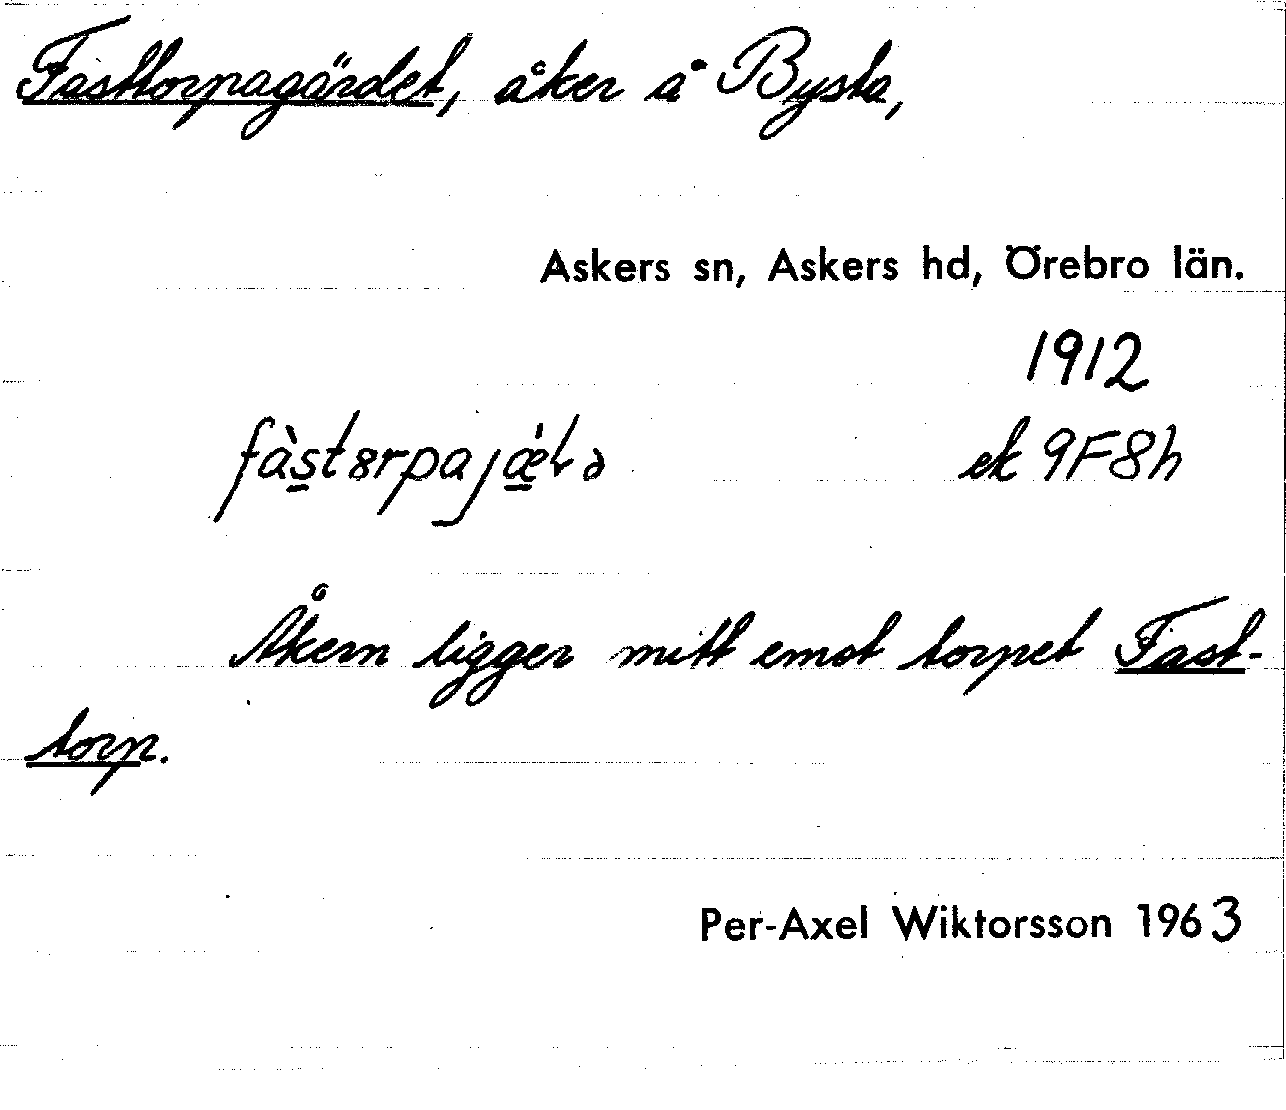 Fasttorpagärdet, åker å Bysta,
Askers sn, Askers hd, Örebro län.
1912
ek 9F8h
Åkern ligger mitt emot torpet Fast-
torp.
Per-Axel Wiktorsson 1963